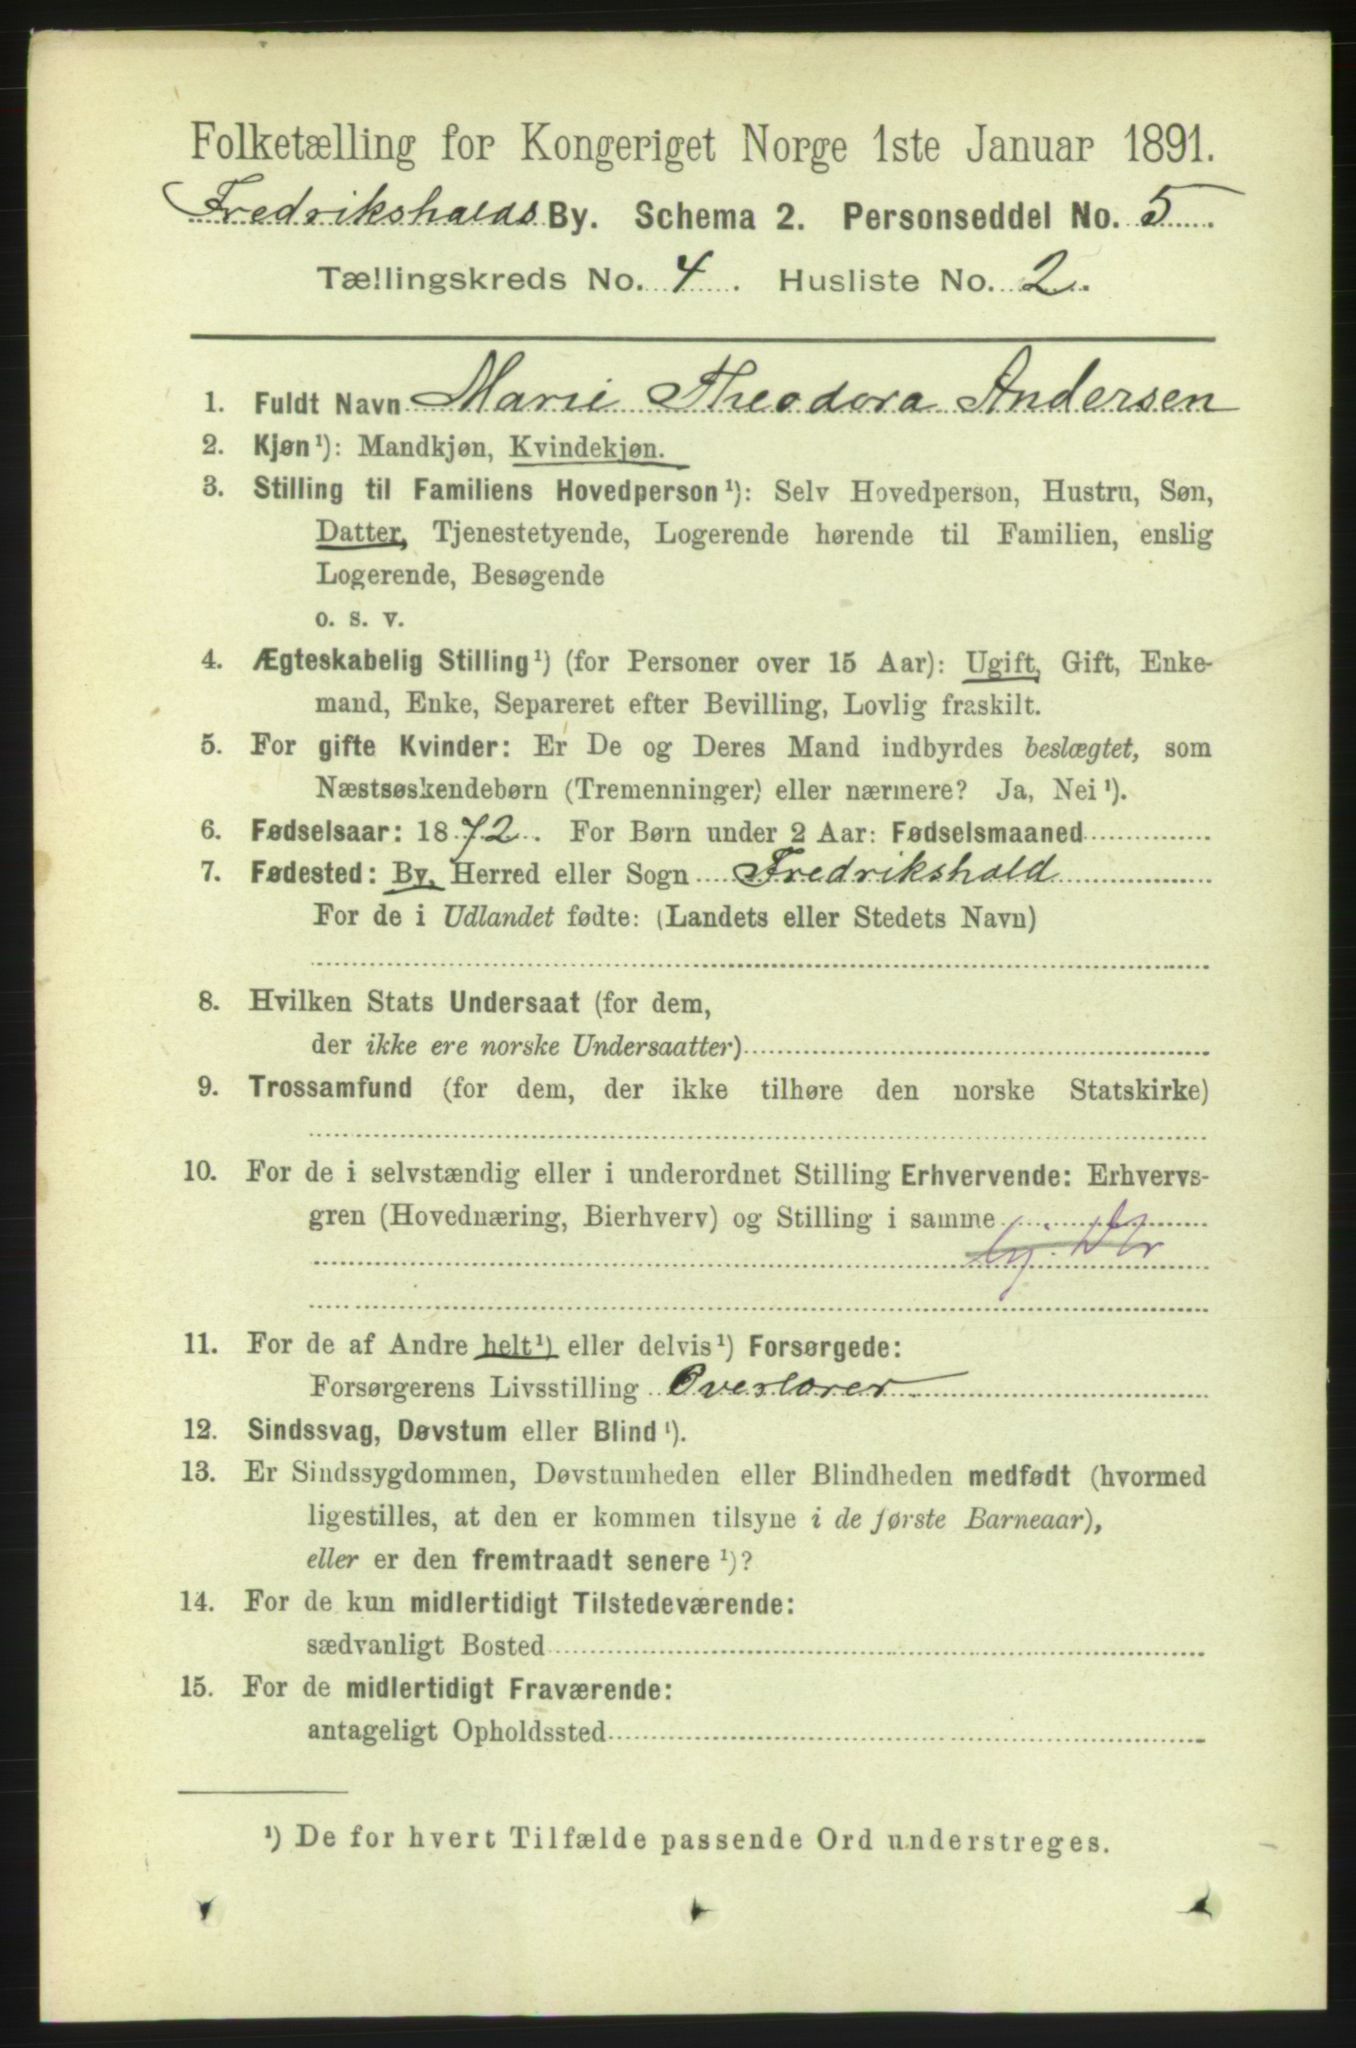 Folketælling for Kongeriget Norge 1ste Januar 1891.
Fredrikshalds By. Schema 2. Personseddel No. 5
Tællingskreds No. 4. Husliste No. 2.
1. Fuldt Navn Marie Theodora Andersen
2. Kjøn¹): Mandkjøn, Kvindekjøn.
3. Stilling til Familiens Hovedperson¹): Selv Hovedperson, Hustru, Søn,
Datter, Tjenestetyende, Logerende hørende til Familien, enslig
Logerende, Besøgende
o. s. v.
4. Ægteskabelig Stilling¹) (for Personer over 15 Aar): Ugift, Gift, Enke-
mand, Enke, Separeret efter Bevilling, Lovlig fraskilt.
5. For gifte Kvinder: Er De og Deres Mand indbyrdes beslægtet, som
Næstsøskendebørn (Tremenninger) eller nærmere? Ja, Nei¹).
6. Fødselsaar: 1872. For Børn under 2 Aar: Fødselsmaaned
7. Fødested: By, Herred eller Sogn Fredrikshald
For de i Udlandet fødte: (Landets eller Stedets Navn)
8. Hvilken Stats Undersaat (for dem,
der ikke ere norske Undersaatter)
9. Trossamfund (for dem, der ikke tilhøre den norske Statskirke)
10. For de i selvstændig eller i underordnet Stilling Erhvervende: Erhvervs-
gren (Hovednæring, Bierhverv) og Stilling i samme
11. For de af Andre helt¹) eller delvis¹) Forsørgede:
Forsørgerens Livsstilling Overlærer
12. Sindssvag, Døvstum eller Blind¹).
13. Er Sindssygdommen, Døvstumheden eller Blindheden medfødt (hvormed
ligestilles, at den er kommen tilsyne i de første Barneaar),
eller er den fremtraadt senere¹)?
14. For de kun midlertidigt Tilstedeværende:
sædvanligt Bosted
15. For de midlertidigt Fraværende:
antageligt Opholdssted
¹) De for hvert Tilfælde passende Ord understreges.